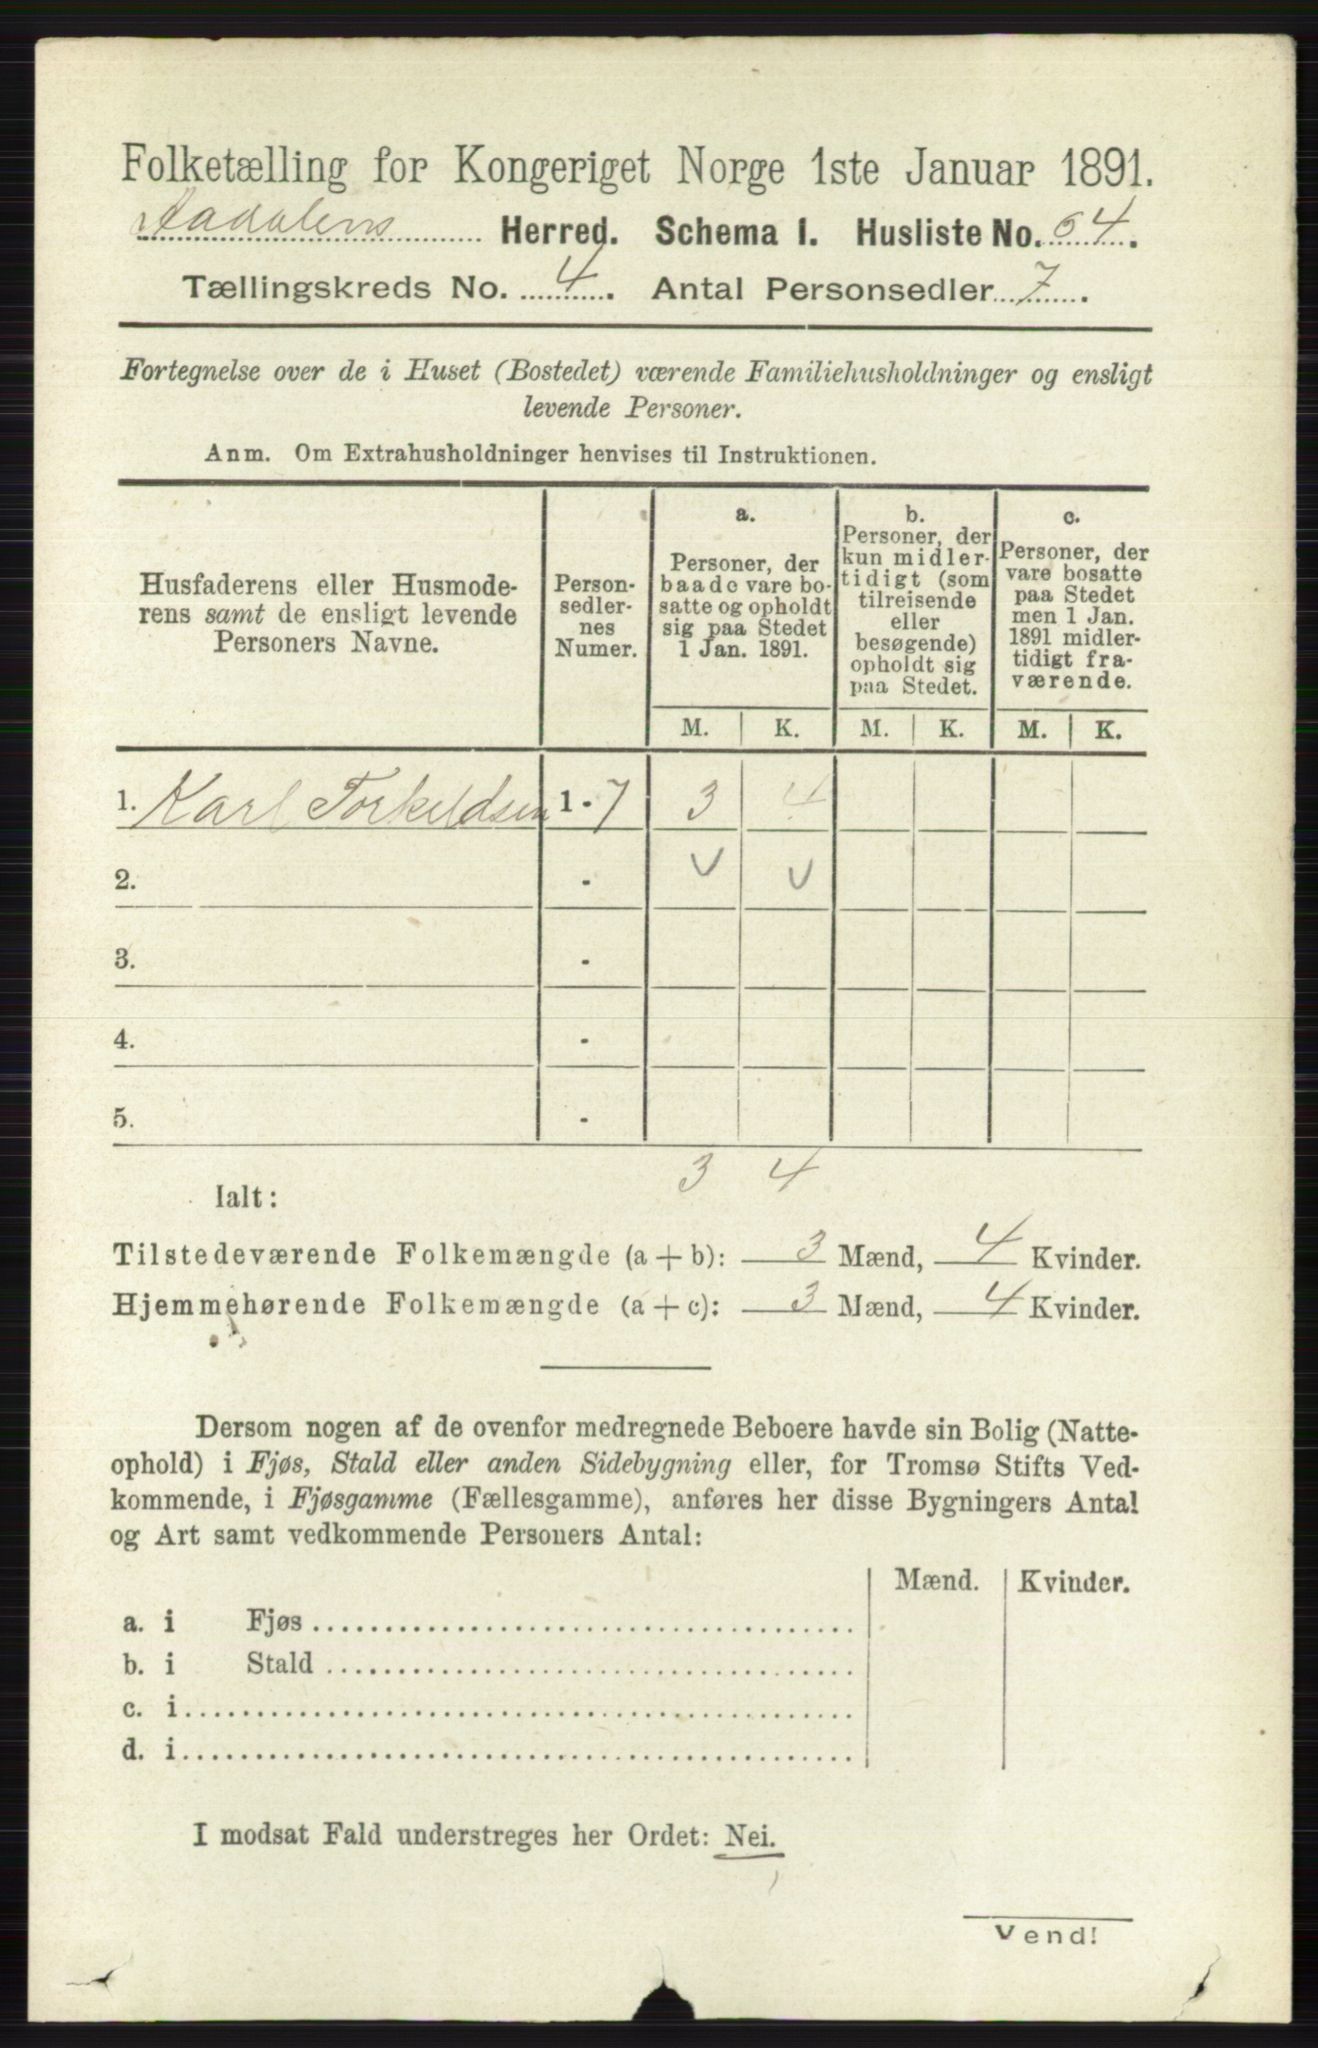 Folketælling for Kongeriget Norge 1ste Januar 1891.
Aadalens Herred. Schema I. Husliste No. 64.
Tællingskreds No. 4. Antal Personsedler 7.
Fortegnelse over de i Huset (Bostedet) værende Familiehusholdninger og ensligt
levende Personer.
Anm. Om Extrahusholdninger henvises til Instruktionen.
Husfaderens eller Husmode-
rens samt de ensligt levende
Personers Navne.
Person-
sedler-
nes
Numer.
a.
Personer, der
baade vare bo-
satte og opholdt
sig paa Stedet
1 Jan. 1891.
b.
Personer, der
kun midler-
tidigt (som
tilreisende
eller
besøgende)
opholdt sig
paa Stedet.
c.
Personer, der
vare bosatte
paa Stedet
men 1 Jan.
1891 midler-
tidigt fra-
værende.
M. K. M. K. M. K.
1. Karl Torkeldsen 1 - 7 3 4
2. -
3. -
4. -
5. -
3 4
Ialt:
Tilstedeværende Folkemængde (a + b): 3 Mænd, 4 Kvinder.
Hjemmehørende Folkemængde (a + c): 3 Mænd, 4 Kvinder.
Dersom nogen af de ovenfor medregnede Beboere havde sin Bolig (Natte-
ophold) i Fjøs, Stald eller anden Sidebygning eller, for Tromsø Stifts Ved-
kommende, i Fjøsgamme (Fællesgamme), anføres her disse Bygningers Antal
og Art samt vedkommende Personers Antal:
Mænd. Kvinder.
a. i Fjøs
b. i Stald
c. i
d. i
I modsat Fald understreges her Ordet: Nei.
Vend!